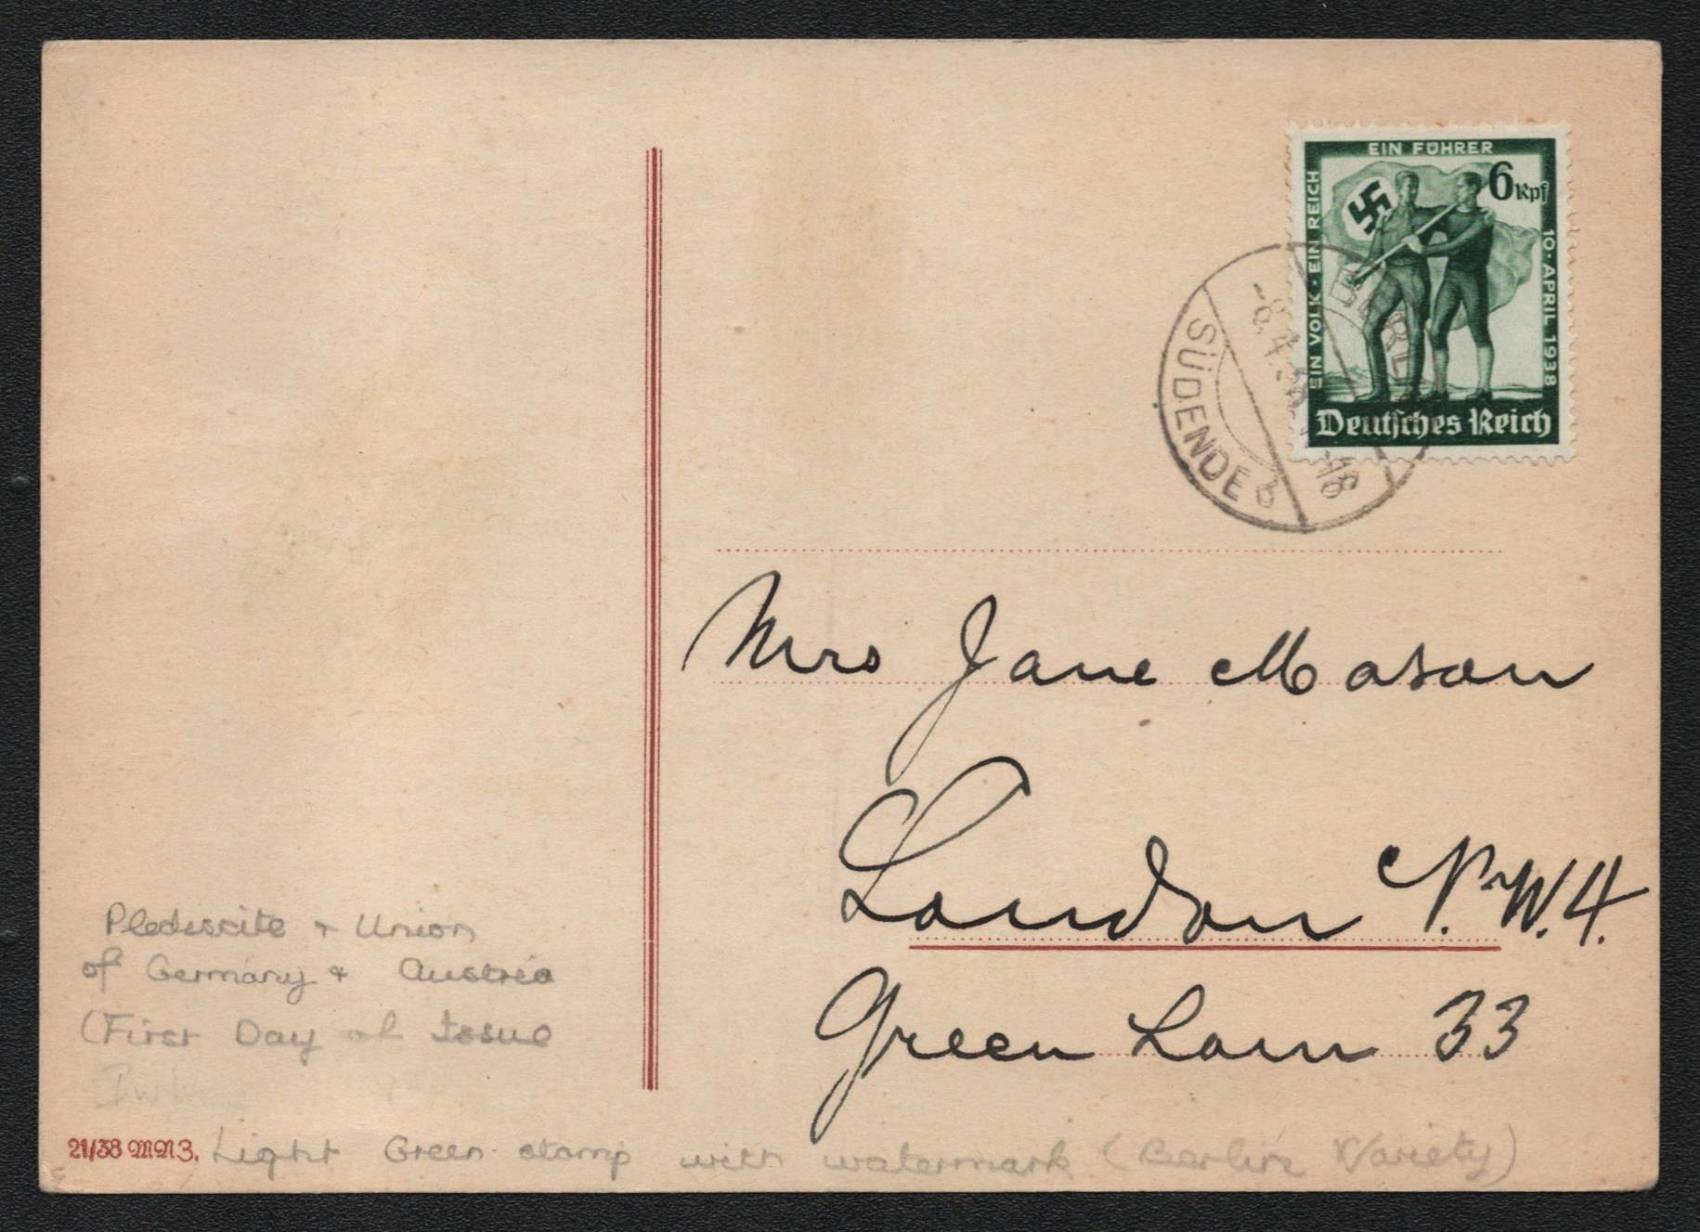 EIN FÜHRER
6Rpf
EIN VOLK · EIN REICH
10. APRIL 1938
Deutsches Reich
BERL
-8.4.38
-18
SÜDENDE b
Mrs Jane Mason
London N.W.4.
Green Lane 33
Plebiscite + Union
of Germany + Austria
(First Day of Issue
21/38 MNZ.
Light Green stamp with watermark (Berlin Variety)